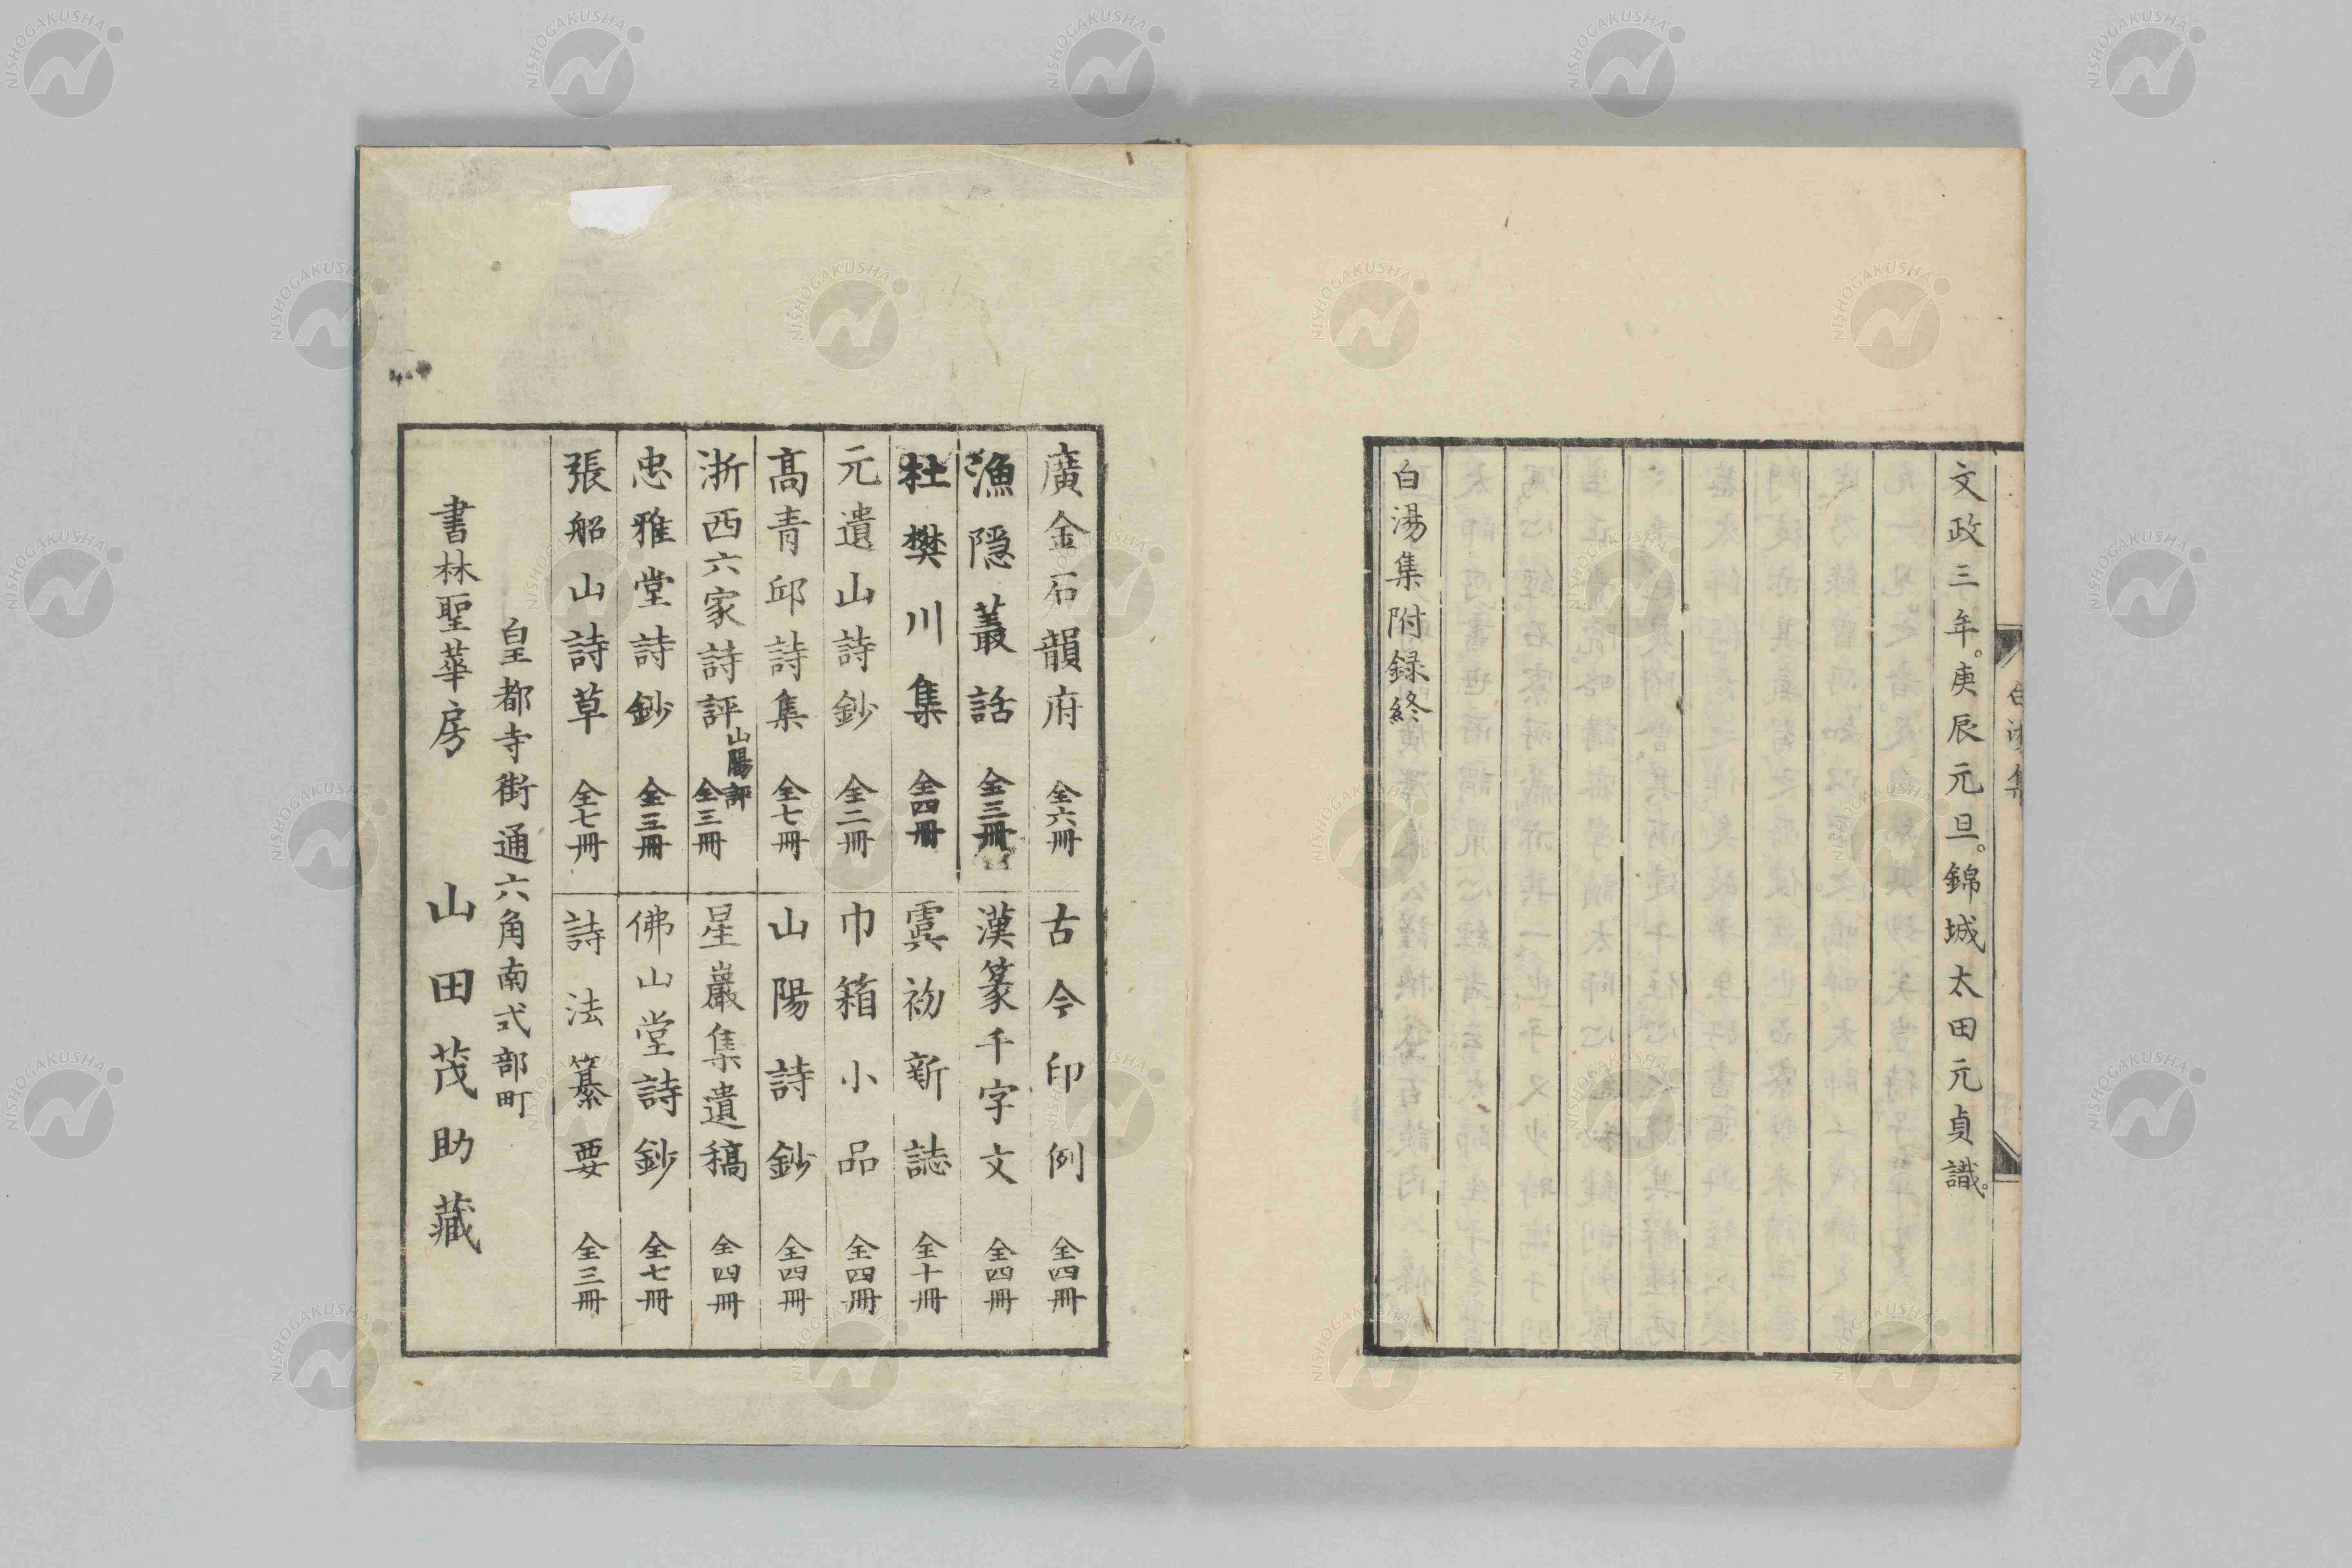 文政三年。庚辰元旦。錦城太田元貞識。
白湯集附録終
白湯集
廣金石韻府 全六冊
漁隠叢話 全三冊
杜樊川集 全四冊
元遺山詩鈔 全二冊
髙青邱詩集 全七冊
浙西六家詩評 山陽評 全三冊
忠雅堂詩鈔 全三冊
張船山詩草 全七冊
古今印例 全四冊
漢篆千字文 全四冊
虞初新誌 全十冊
巾箱小品 全四冊
山陽詩鈔 全四冊
星巖集遺稿 全四冊
佛山堂詩鈔 全七冊
詩法纂要 全三冊
皇都寺街通六角南式部町
書林聖華房 山田茂助藏
NISHOGAKUSHA